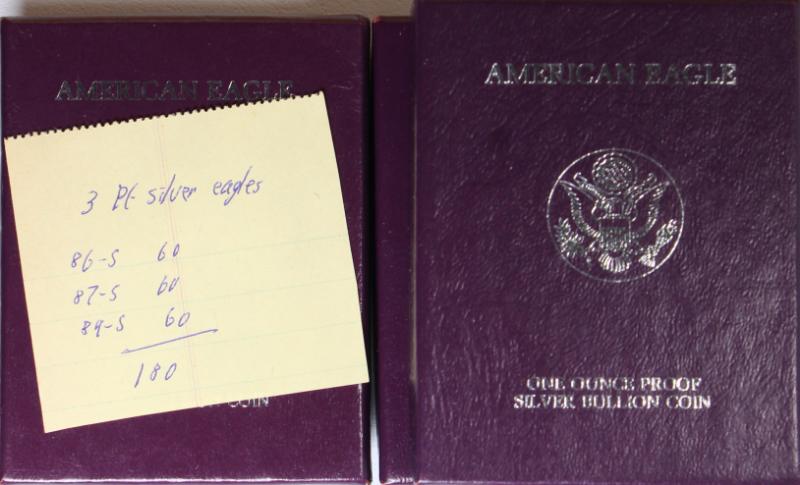 AMERICAN EAGLE
3 Pf silver eagles
86-S 60
87-S 60
89-S 60
180
COIN
AMERICAN EAGLE
ONE OUNCE PROOF
SILVER BULLION COIN